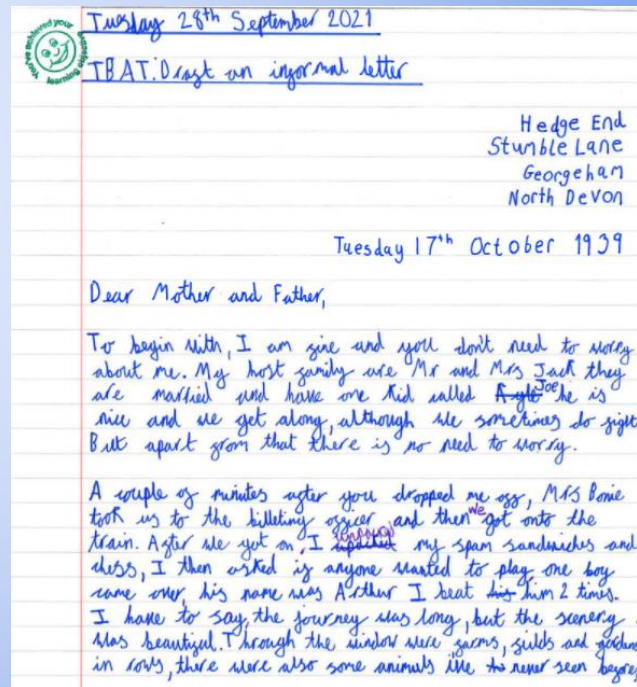 You've achieved your learning objective
Tuesday 28th September 2021
TBAT: Draft an informal letter
Hedge End
Stumble Lane
Georgeham
North Devon
Tuesday 17th October 1939
Dear Mother and Father,
To begin with, I am fine and you don't need to worry
about me. My host family are Mr and Mrs Jack they
are married and have one kid called Joe he is
nice and we get along, although we sometimes do fight
But apart from that there is no need to worry.
A couple of minutes after you dropped me off, Mrs Bonie
took us to the billeting officer and then we got onto the
train. After we got on, I unpacked my spam sandwiches and
chess, I then asked if anyone wanted to play one boy
came over, his name was Arthur I beat his him 2 times.
I have to say, the journey was long, but the scenery
was beautiful. Through the window were farms, fields and gardens
in rows, there were also some animals ive never seen before,